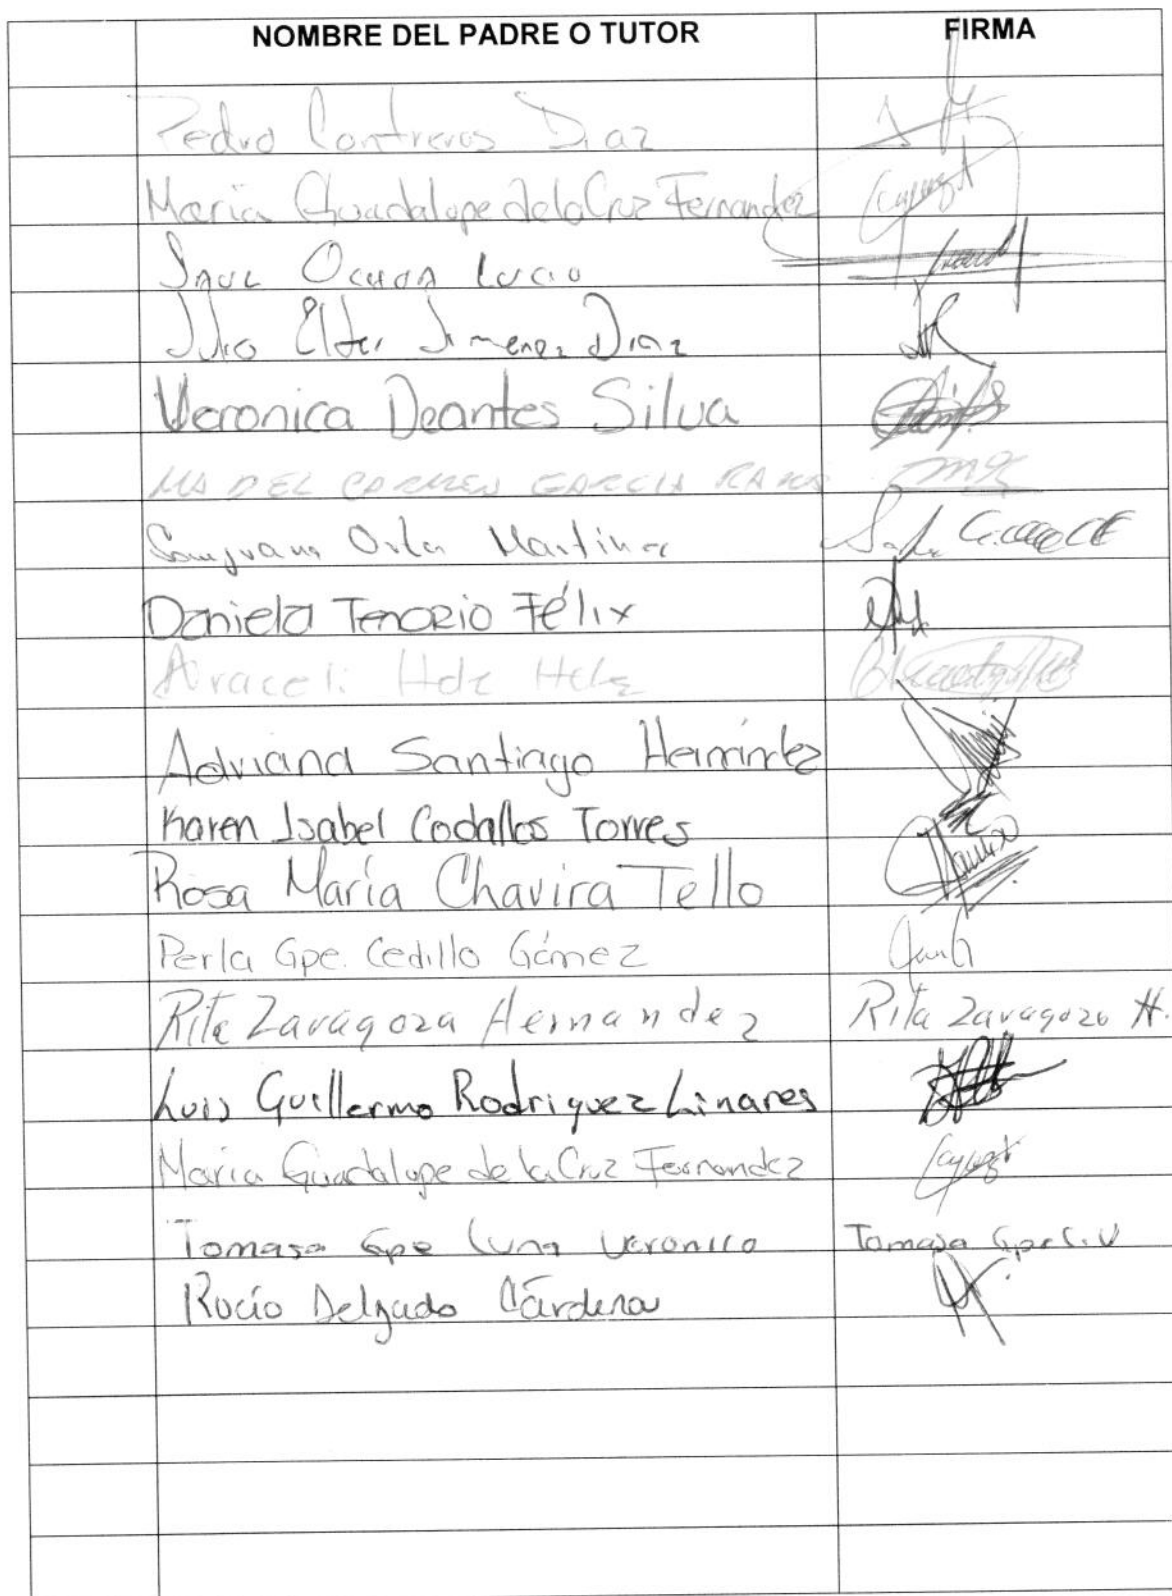 NOMBRE DEL PADRE O TUTOR FIRMA
Pedro Contreras Diaz
Maria Guadalupe de la Cruz Fernandez
Saul Ochoa Lucio
Jimenez Diaz
Veronica Deantes Silva
MA DEL CARMEN GARCIA RAMOS
Sanjuana Orta Martinez
Daniela Tenorio Félix
Araceli Hdz Hdz
Adriana Santiago
Karen Isabel Codallos Torres
Rosa María Chavira Tello
Perla Gpe. Cedillo Gámez
Rita Zaragoza Hernandez Rita Zaragoza H.
Luis Guillermo Rodriguez Linares
Maria Guadalupe de la Cruz Fernandez
Tomasa Gpe Luna Veronico Tomasa Gpe L. V
Rocío Delgado Cárdenas